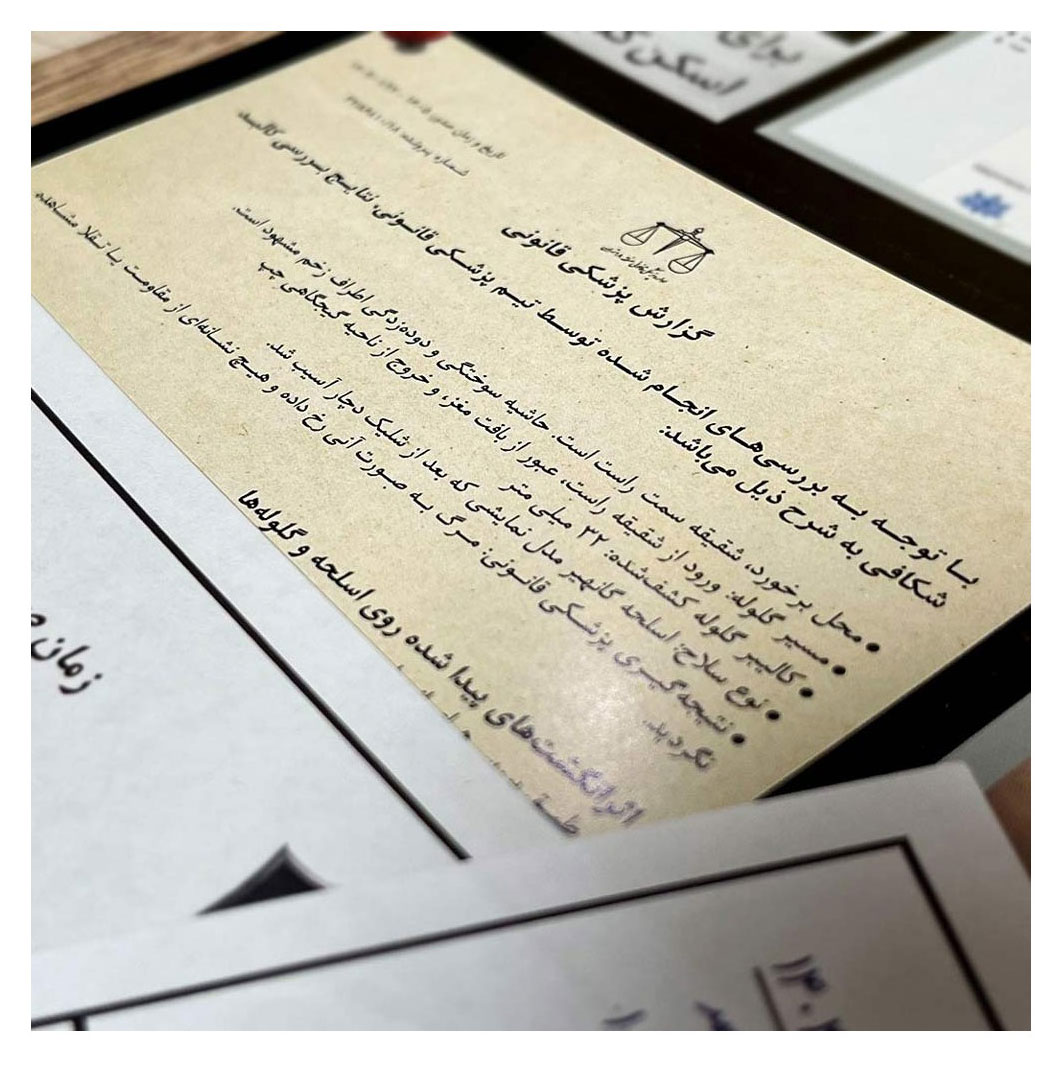 برای
اسکن
تاریخ و زمان
شماره پرونده
گزارش پزشکی قانونی
با توجه به بررسی‌های انجام شده توسط تیم پزشکی قانونی، نتایج بررسی کالبد
شکافی به شرح ذیل می‌باشد:
• محل برخورد، شقیقه سمت راست است. حاشیه سوختگی و دوده‌زدگی اطراف زخم مشهود است.
• مسیر گلوله: ورود از شقیقه راست، عبور از بافت مغز، و خروج از ناحیه گیجگاهی چپ
• کالیبر گلوله کشف‌شده: ۲۲ میلی متر
• نوع سلاح: اسلحه گانهیر مدل نمایشی که بعد از شلیک دچار آسیب شد.
• نتیجه‌گیری پزشکی قانونی: مرگ به صورت آنی رخ داده و هیچ نشانه‌ای از مقاومت یا تقلا مشاهده
نگردید.
اثرانگشت‌های پیدا شده روی اسلحه و گلوله‌ها
زمان